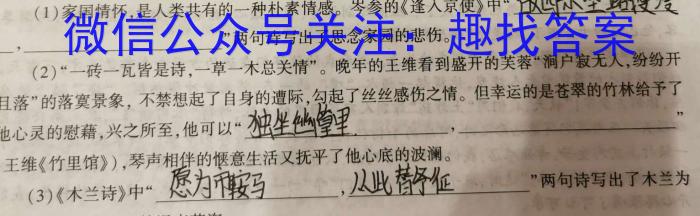 (1)家国情怀,是人类共有的一种朴素情感。岑参的《逢入京使》中“
,”两句写出不思念家园的悲伤。
微信公众号关注：趣找答案
(2)“一砖一瓦皆是诗,一草一木总关情”。晚年的王维看到盛开的芙蓉“涧户寂无人,纷纷开
且落”的落寞景象,不禁想起了自身的遭际,勾起了丝丝感伤之情。但幸运的是苍翠的竹林给予了
他心灵的慰藉,兴之所至,他可以“独坐幽篁里,”
王维《竹里馆》),琴声相伴的惬意生活又抚平了他心底的波澜。
(3)《木兰诗》中“愿为市鞍马,从此替爷征”两句诗写出了木兰为